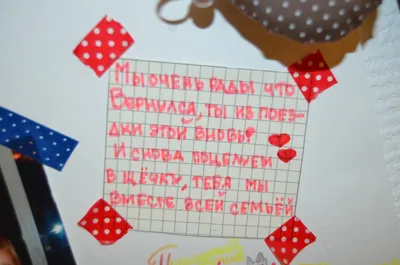 Мы очень рады что
вернулся, ты из поез-
дки этой вновь!
И снова поцелуем
в щёчку, тебя мы
вместе всей семьёй